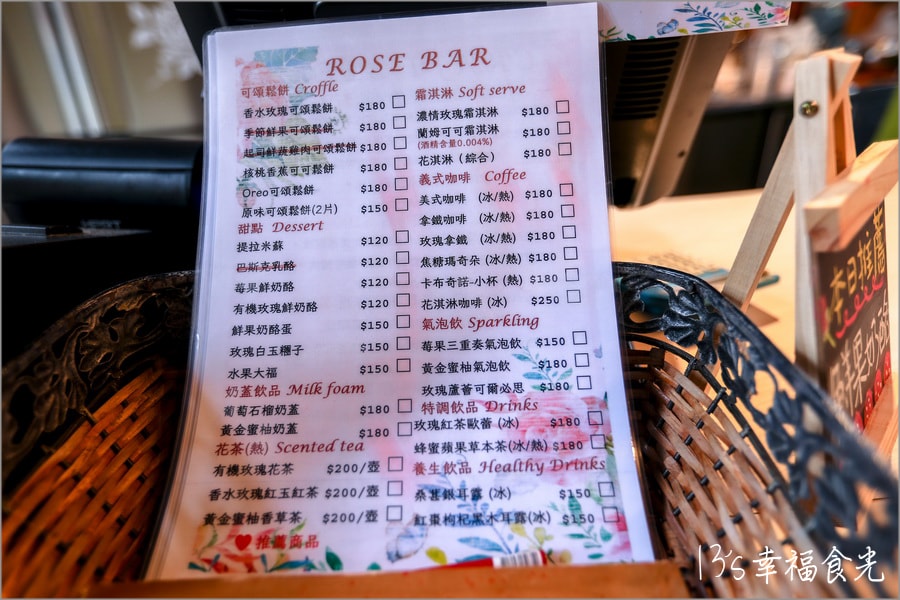 ROSE BAR
可頌鬆餅 Croffle
香水玫瑰可頌鬆餅 $180
季節鮮果可頌鬆餅 $180
起司鮮蔬雞肉可頌鬆餅 $180
核桃香蕉可可鬆餅 $180
Oreo可頌鬆餅 $180
原味可頌鬆餅(2片) $150
甜點 Dessert
提拉米蘇 $120
巴斯克乳酪 $120
莓果鮮奶酪 $120
有機玫瑰鮮奶酪 $120
鮮果奶酪蛋 $150
玫瑰白玉糰子 $150
水果大福 $150
奶蓋飲品 Milk foam
葡萄石榴奶蓋 $180
黃金蜜柚奶蓋 $180
花茶(熱) Scented tea
有機玫瑰花茶 $200/壺
香水玫瑰紅玉紅茶 $200/壺
黃金蜜柚香草茶 $200/壺
♥推薦商品
霜淇淋 Soft serve
濃情玫瑰霜淇淋 $180
蘭姆可可霜淇淋 $180
(酒精含量0.004%)
花淇淋(綜合) $180
義式咖啡 Coffee
美式咖啡 (冰/熱) $180
拿鐵咖啡 (冰/熱) $180
玫瑰拿鐵 (冰/熱) $180
焦糖瑪奇朵(冰/熱) $180
卡布奇諾-小杯(熱) $180
花淇淋咖啡(冰) $250
氣泡飲 Sparkling
莓果三重奏氣泡飲 $150
黃金蜜柚氣泡飲 $180
玫瑰蘆薈可爾必思 $180
特調飲品 Drinks
玫瑰紅茶歐蕾(冰) $180
蜂蜜蘋果草本茶(冰/熱) $180
養生飲品 Healthy Drinks
桑葚銀耳露(冰) $150
紅棗枸杞黑木耳露(冰) $150
本日推薦
13's幸福食光